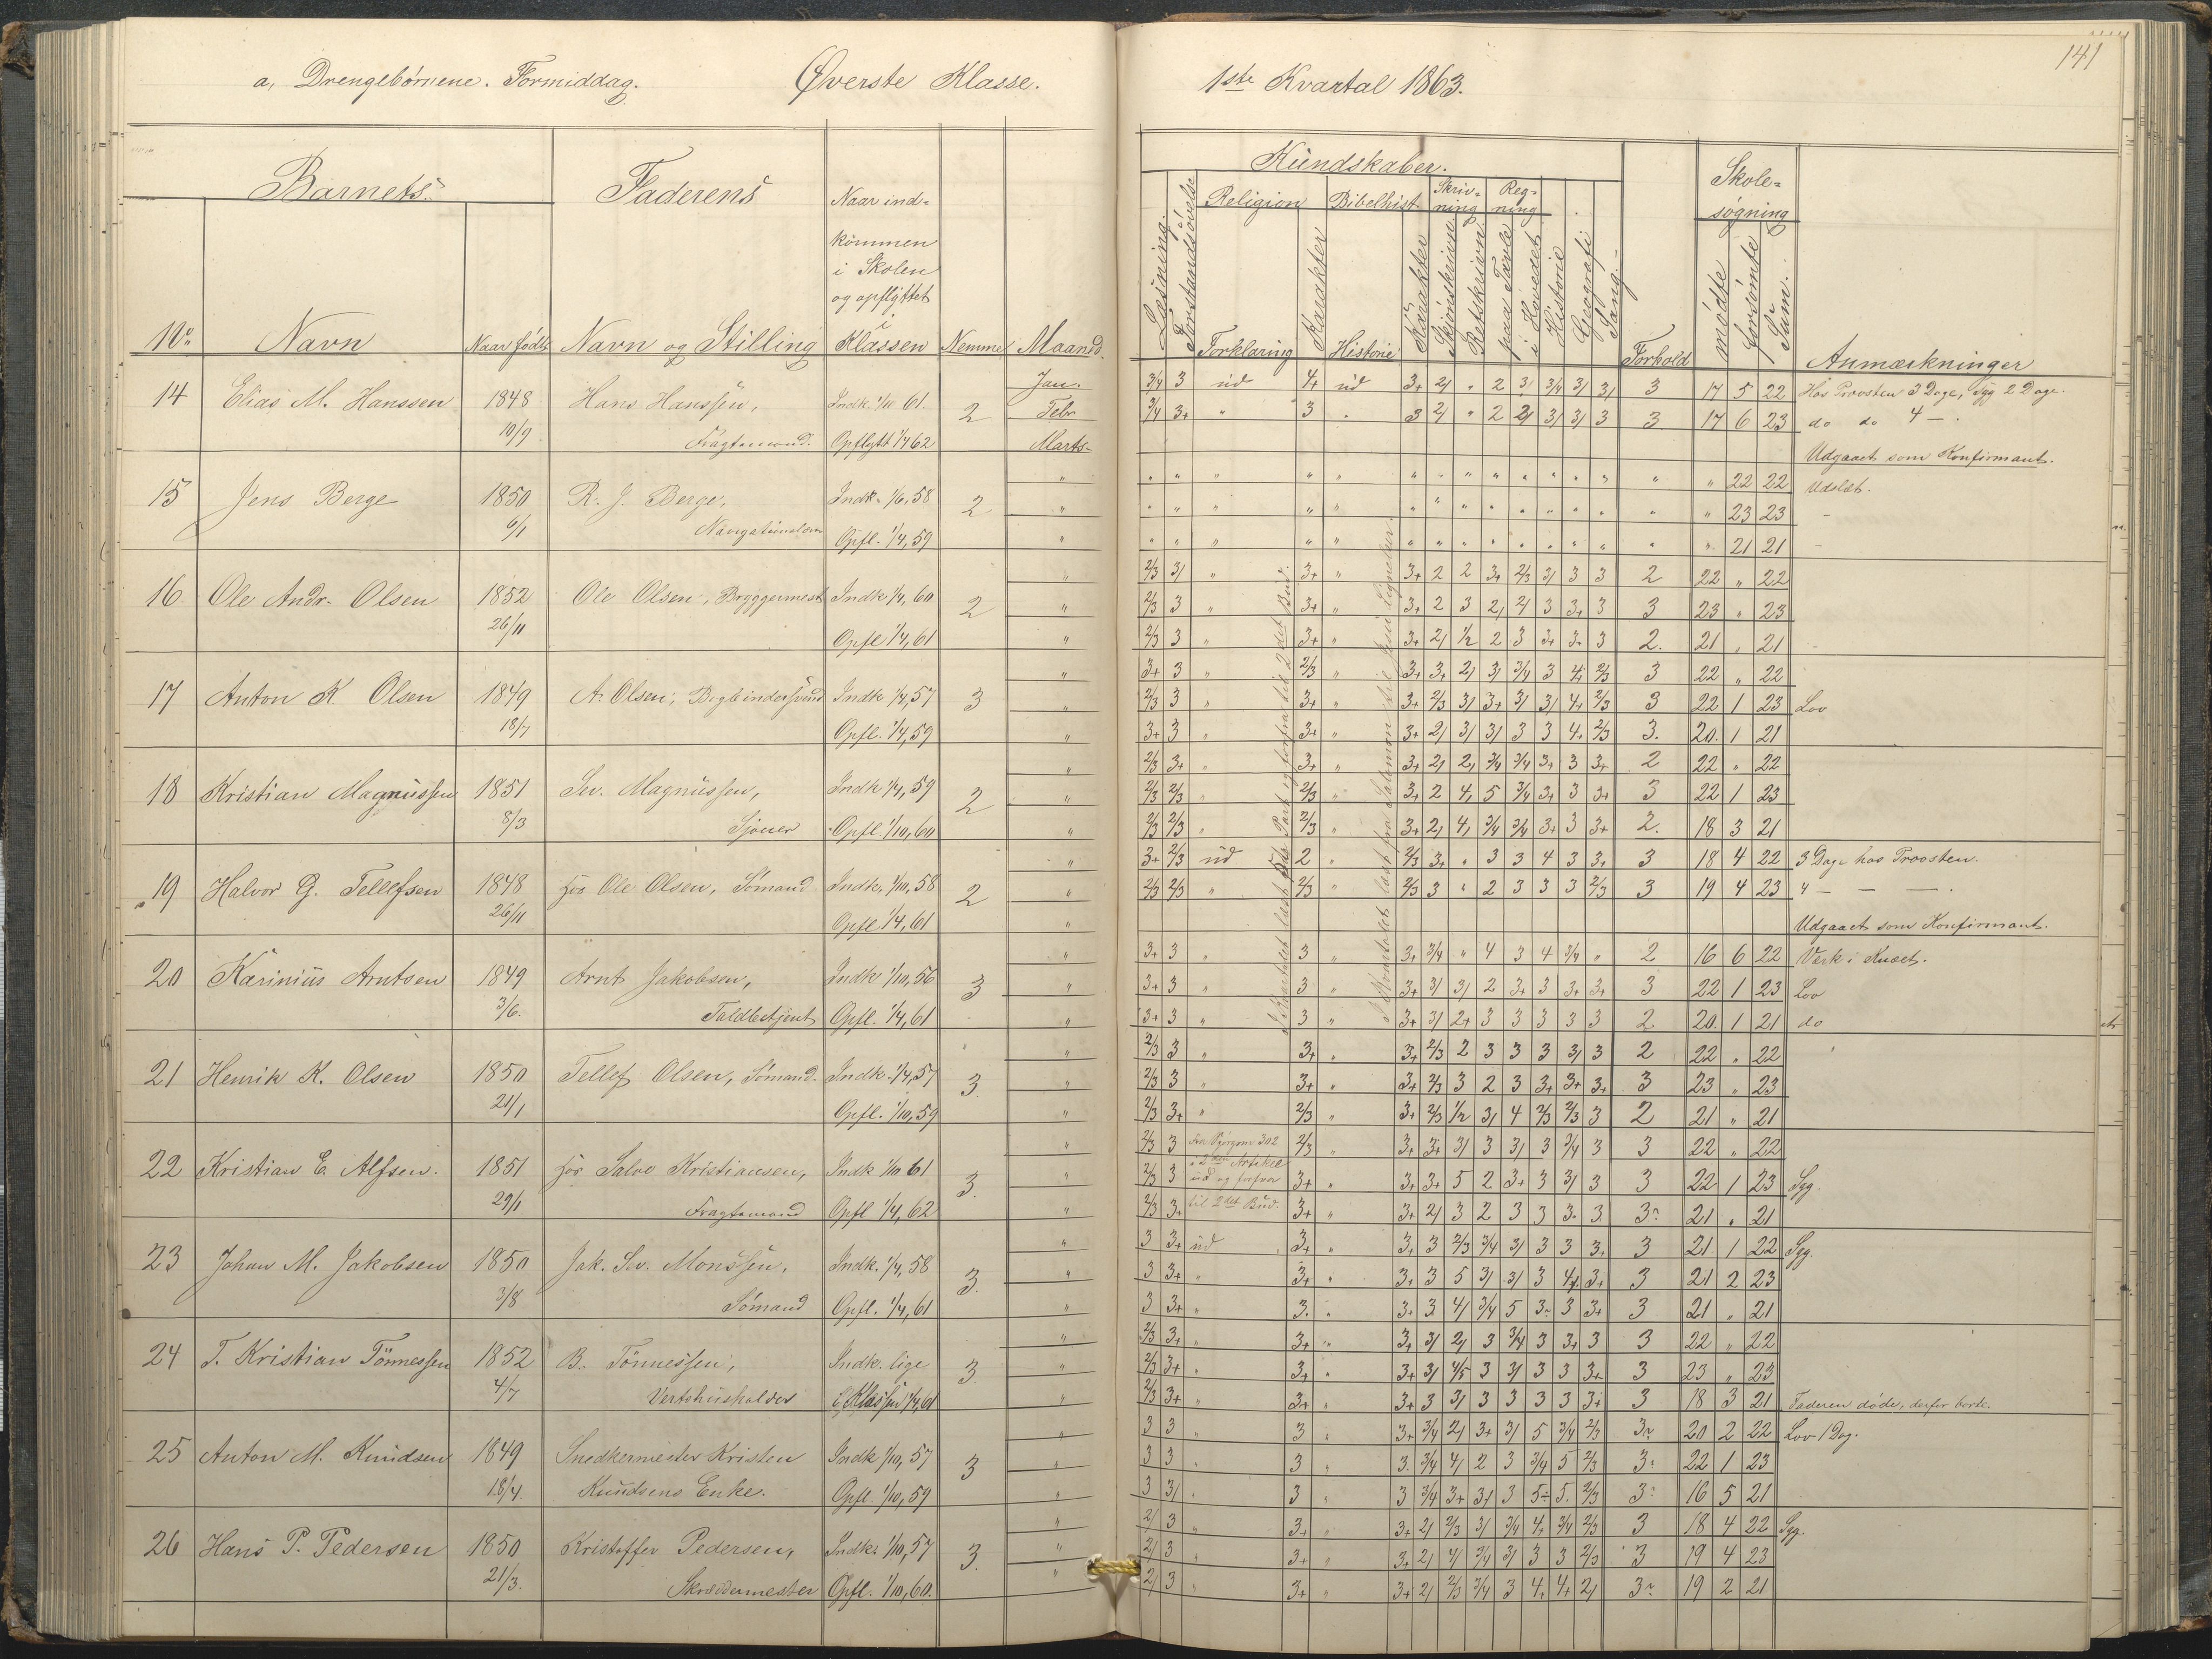 a, Drengebørnene. Formiddag. Øverste Klasse.
1ste Kvartal 1863.
141
Barnets Faderens Naar ind-
kommen
i Skolen
og opflyttet
i
No Navn Naar født Navn og Stilling Klassen Nemme Maaned.
Kundskaber. Skole-
søgning
Religion Bibelhist. Skriv-
ning Reg-
ning
Læsning. Forstandsøvelse Forklaring Karakter Historie Karakter Skjønskrivn. Retskrivn. paa Tavle i Hovedet Historie Geografi Sang. Forhold mødte forsømte Sum. Anmærkninger
14 Elias M. Hanssen 1848 Hans Hanssen, Indk. 1/11 61. 2 Jan.
Febr
10/9 Fragtemand. Opflytt 1/4 62 Marts-
3/4 3 ud 4+ ud 3+ 2/ " 2 3/ 3/4 3/ 3/ 3 17 5 22 Hos Provsten 3 Dage, Syg 2 Dage.
3/4 3+ " 3 " 3 2/ " 2 2/ 3/ 3/ 3 3 17 6 23 do do 4 - .
Udgaaet som Konfirmant.
15 Jens Berge 1850 R. J. Berge, Indk. 1/6, 58 2
6/1 Opfl. 1/4, 59
" 22 22 Udslдt.
" 23 23 -
" 21 21 -
16 Ole Andr. Olsen 1852 Ole Olsen, Bryggermest Indk 1/4, 60 2
26/11 Opfl 1/4, 61
2/3 3/ " 3+ " 3+ 2 2 3+ 2/3 3/ 3 3 2 22 " 22
2/3 3 " 3+ " 3+ 2 3 2/ 2/ 3 3+ 3 3 23 " 23
2/3 3 " 3+ " 3+ 2/ 1/2 2 3 3+ 3+ 3 2. 21 " 21
17 Anton K. Olsen 1849 A. Olsen, Bogbindersvend Indk 1/4, 57 3
18/7 Opfl. 1/4, 59
3+ 3 " 2/3 " 3+ 3+ 2/ 3/ 3/4 3 4+ 2/3 3 22 " 22
2/3 3 " 3+ " 3+ 2/3 3/ 3+ 3/ 3/ 4+ 2/3 3 22 1 23 Lov
3+ 3 " 3+ " 3+ 2/ 3/ 3/ 3 3 4+ 2/3 3. 20. 1 21
18 Kristian Magnussen 1851 Sev. Magnussen, Indk 1/4, 59 2
8/3 Sjouer Opfl. 1/10, 60
2/3 3+ " 3+ " 3+ 2/ 2/ 3/4 3/4 3+ 3 3+ 2 22 " 22
2/3 2/3 " 2/3 " 3+ 2 4+ 5 3/4 3+ 3 3+ 3 22 1 23
2/3 2/3 " 2/3 " 3+ 2/ 4+ 3/4 3/4 3+ 3 3+ 2. 18 3 21
19 Halvor G. Tellefsen 1848 hos Ole Olsen, Sömand Indk. 1/10, 58 2
26/11 Opfl 1/4, 61
3+ 2/3 ud 2 " 2/3 3+ " 3 3 4 3 3+ 3 18 4 22 3 Dage hos Provsten.
2/3 2/3 " 2/3 " 2/3 3 " 2 3 3 3 2/3 3 19 4 23 4 - - -.
Udgaaet som Konfirmant.
20 Karinius Arntsen 1849 Arnt Jakobsen, Indk 1/10, 56 3
3/6. Toldbetjent Opfl. 1/4, 61
3+ 3 " 3 " 3+ 3/4 " 4 3 4 3/4 " 2 16 6 22 Værk i Knæet.
3+ 3 " 3 " 3+ 3/ 3/ 2 3+ 3 3+ 3+ 3 22 1 23 Lov
3+ 3 " 3 " 3+ 3/ 2+ 3 3 3 3 3 2 20. 1 21 do
21 Henrik K. Olsen 1850 Tellef Olsen, Sömand. Indk. 1/4, 57 3.
21/1 Opfl. 1/10, 59
2/3 3 " 3+ " 3+ 2/3 2 3 3 3 3/ 3 2 22 " 22
2/3 3 " 3+ " 3+ 2/3 3 2 3 3+ 3+ 3+ 3 23 " 23
2/3 3+ " 2/3 " 3+ 2/3 1/2 3/ 4 2/3 2/3 3 2 21 " 21
22 Kristian E. Alfsen. 1851 hos Salve Kristiansen, Indk 1/10 61 3.
29/11 Fragtemand Opfl 1/4, 62
2/3 3 fra Spörgsm 302 2/3 " 3+ 3+ 3/ 3 3/ 3 3/4 3 3 22 " 22
i 2den Artikel
2/3 3 ud og forfra 3+ " 3+ 3+ 5 2 3+ 3 3/ 3 3 22 1 23 Syg.
2/3 3+ til 2det Bud. 3+ " 3+ 2/ 3 2 3 3 3. 3 21 " 21
23 Johan M. Jakobsen 1850 Jak. Sev. Monssen, Indk. 1/4, 58 3.
3/8 Sömand Opfl. 1/4, 61
3 3+ ud 3+ " 3+ 3 2/3 3/4 3/ 3 3 3+ 3 21 1 22 Syg.
3 3+ " 3+ " 3+ 3 5 3/ 3/ 3 4+ 3+ 3 21 2 23
3 3+ " 3. " 3+ 3 4/ 3/4 5 3 3 3+ 3 21 " 21
24 T. Kristian Tönnessen 1852 B. Tönnessen, Indk. lige 3
4/7 Vertshusholder i Klassen 1/4, 61
2/3 3+ " 3+ " 3+ 3/ 2/ 3 3/4 3 3+ 3 3 22 " 22
2/3 3+ " 3+ " 3+ 3/ 4/5 3 3/ 3 3 3+ 3 23 " 23
2/3 3+ " 3+ " 3+ 3 3/ 3 3 3 3 3+ 3 18 3 21 Faderen döde, derfor borte.
25 Anton M. Knudsen 1849 Snedkermester Kristen Indk 1/10, 57 3
18/4. Knudsens Enke. Opfl. 1/10, 59
3 3 " 3 " 3+ 3/4 2/ 3+ 3/ 5 3/4 2/3 20 2 22 Lov 1 Dag.
3 3 " 3 " 3. 3/4 4/ 2 3 3/4 5 2/3 22 1 23
3 3/ " 3 " 3 3/4 3+ 3/ 3 5 5. 2/3 16 5 21
26 Hans P. Pedersen 1850 Kristoffer Pedersen, Indk. 1/10, 57 3.
21/3. Skreddermester Opfl. 1/10, 60.
2/ 3 " 3+ " 3+ 2/ 2/3 3/ 3/4 4+ 3/4 2/3 3 18 4 22 Syg.
2/ 3 " 3+ " 3+ 2/ 4/ 3/4 3/ 3 3 2/3 3 19 4 23
2/ 3 " 3+ " 3+ 2/ 2/3 3/4 3 4+ 4+ 2/ 19 2 21